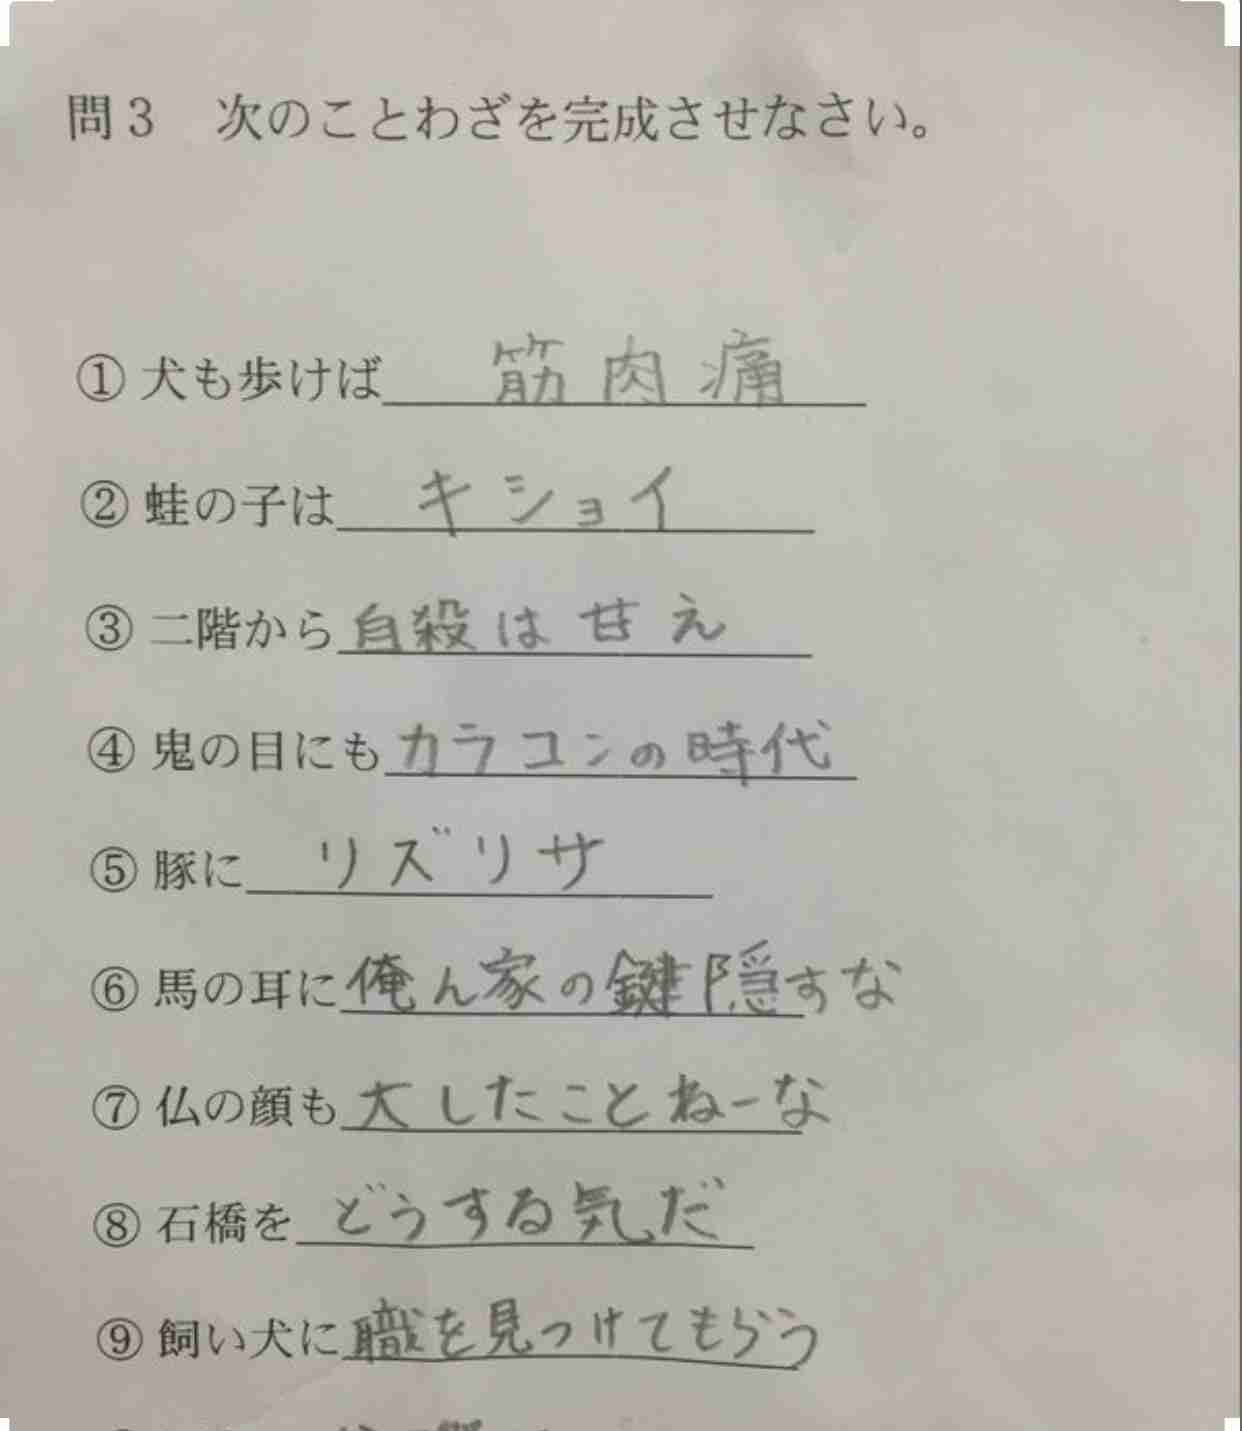 問3 次のことわざを完成させなさい。
① 犬も歩けば 筋肉痛
② 蛙の子は キショイ
③ 二階から 自殺は甘え
④ 鬼の目にも カラコンの時代
⑤ 豚に リズリサ
⑥ 馬の耳に 俺ん家の鍵隠すな
⑦ 仏の顔も 大したことねーな
⑧ 石橋を どうする気だ
⑨ 飼い犬に 職を見つけてもらう